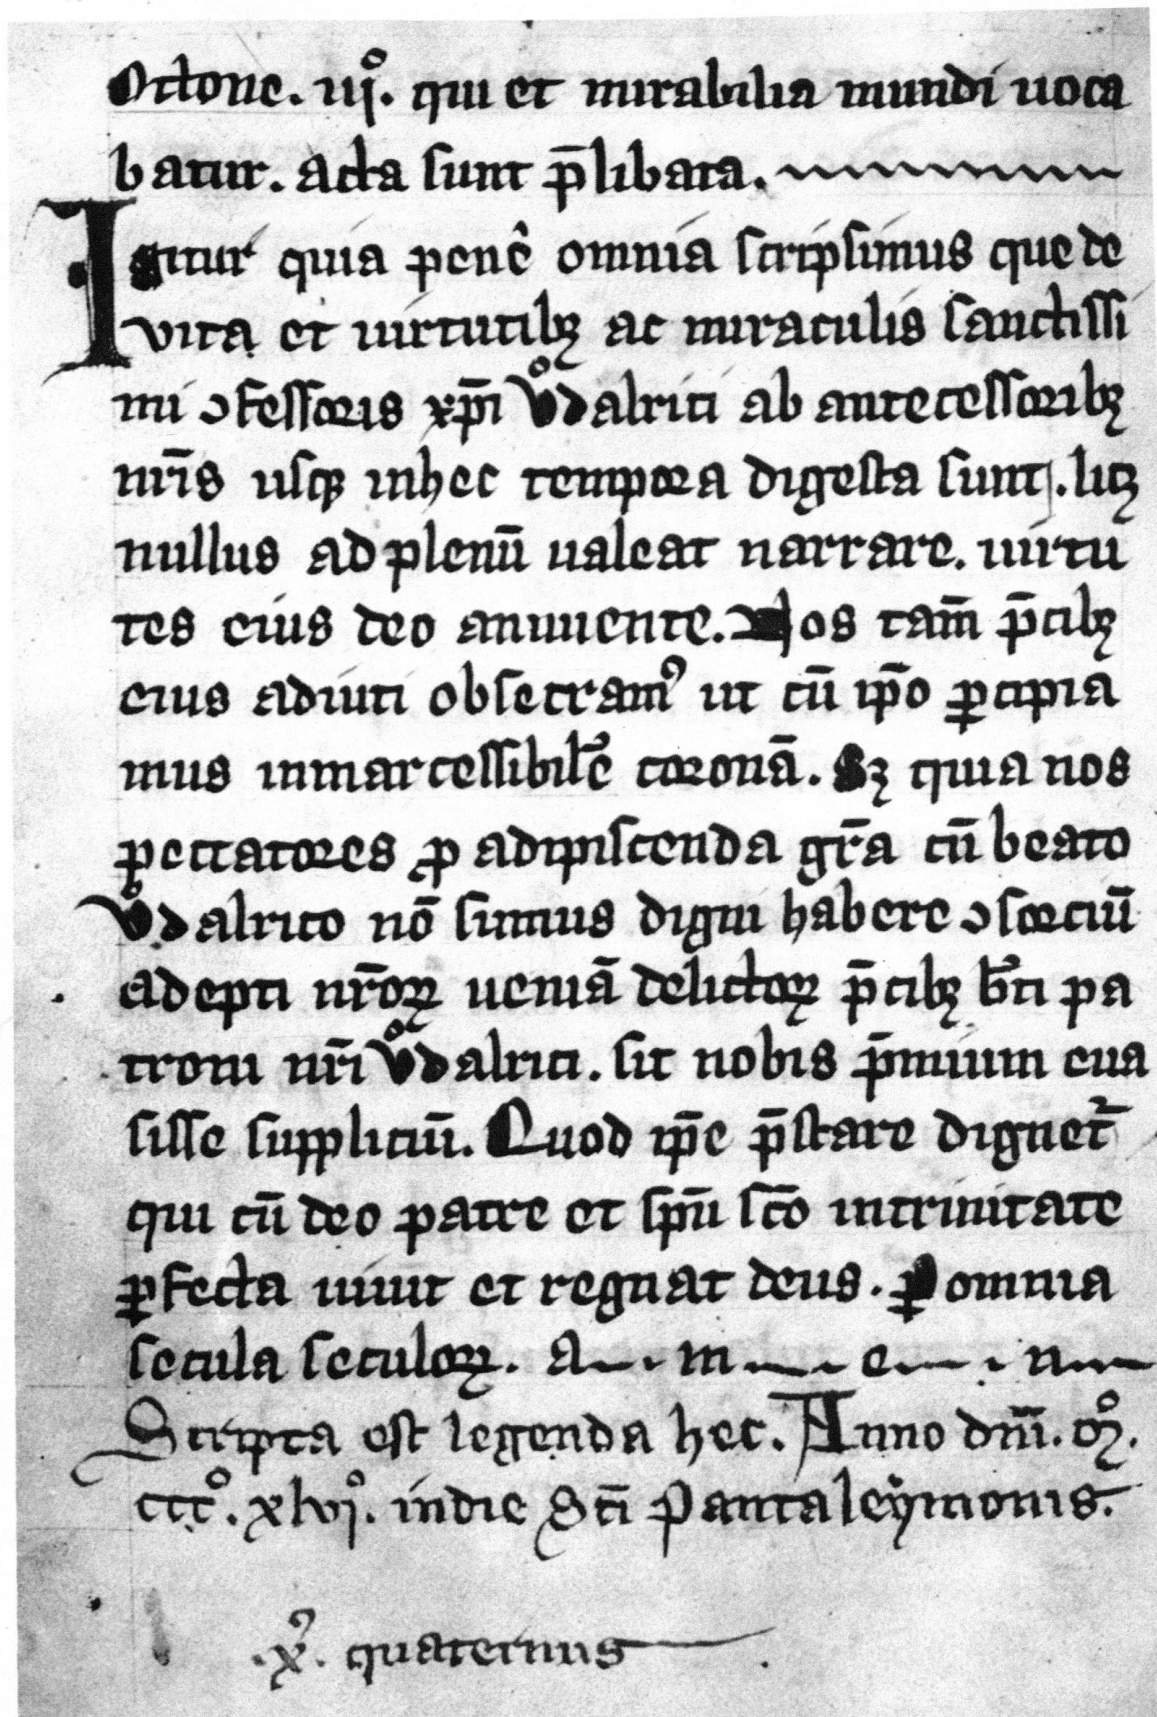 Octone. iijͦ. qui et mirabilia mundi uoca
batur. acta sunt p̄libata.
Igitur quia penê omnia scripsimus que de
vita et uirtutibꝫ ac miraculis sanctissi
mi ꝯfessoris xp̄i Vͦdalrici ab antecessoribꝫ
nr̄is usqꝫ inhec tempora digesta sunt. licꝫ
nullus ad plenū ualeat narrare. uirtu
tes eius deo annuente. Nos tam̄ p̄cibꝫ
eius adiuti obsecramꝰ ut cū ip̄o ꝑcipia
mus inmarcessibilē coronā. Sꝫ quia nos
peccatores ꝓ adipiscenda gr̄a cū beato
Vͦdalrico nō sumus digni habere ꝯsorciū
adepti nr̄oꝝ ueniā delictoꝝ p̄cibꝫ bt̄i pa
troni nr̄i Vͦdalrici. sit nobis p̄mium eua
sisse suppliciū. Quod ip̄e p̄stare dignet᷑
qui cū deo patre et sp̄u sc̄o intrinitate
ꝑfecta uiuit et regnat deus. ꝑ omnia
secula seculoꝝ. a. m. e. n
Scripta est legenda hec. Anno dn̄i. mͦ.
cccͦ. xlvjͦ. indie Sc̄i Pantaleẏmonis.
.xꝰ. quaternus